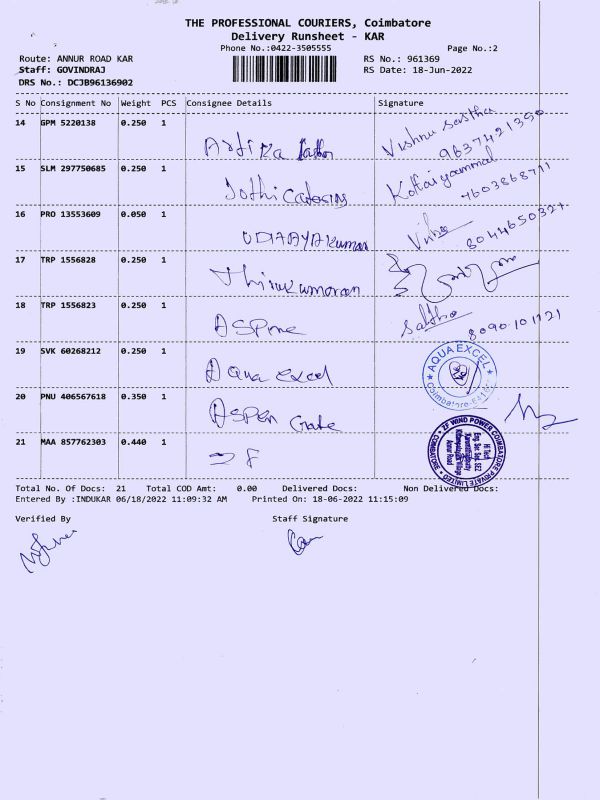 THE PROFESSIONAL COURIERS, Coimbatore
Delivery Runsheet - KAR
Phone No.:0422-3505555 Page No.:2
Route: ANNUR ROAD KAR RS No.: 961369
Staff: GOVINDRAJ RS Date: 18-Jun-2022
DRS No.: DCJB96136902
S No Consignment No Weight PCS Consignee Details Signature
14 GPM 5220138 0.250 1 Vishnu sastha
9637421350
15 SLM 297750685 0.250 1 Jothi Kottaiyammal
16 PRO 13553609 0.050 1 UDHAYAKumar
17 TRP 1556828 0.250 1 Thirukumaran
18 TRP 1556823 0.250 1
8090101121
19 SVK 60268212 0.250 1 Aqua Excel AQUA EXCEL
20 PNU 406567618 0.350 1 ASPEN
21 MAA 857762303 0.440 1 ZF ZF WIND POWER COIMBATORE PRIVATE LIMITED
Total No. Of Docs: 21 Total COD Amt: 0.00 Delivered Docs: Non Delivered Docs:
Entered By :INDUKAR 06/18/2022 11:09:32 AM Printed On: 18-06-2022 11:15:09
Verified By Staff Signature